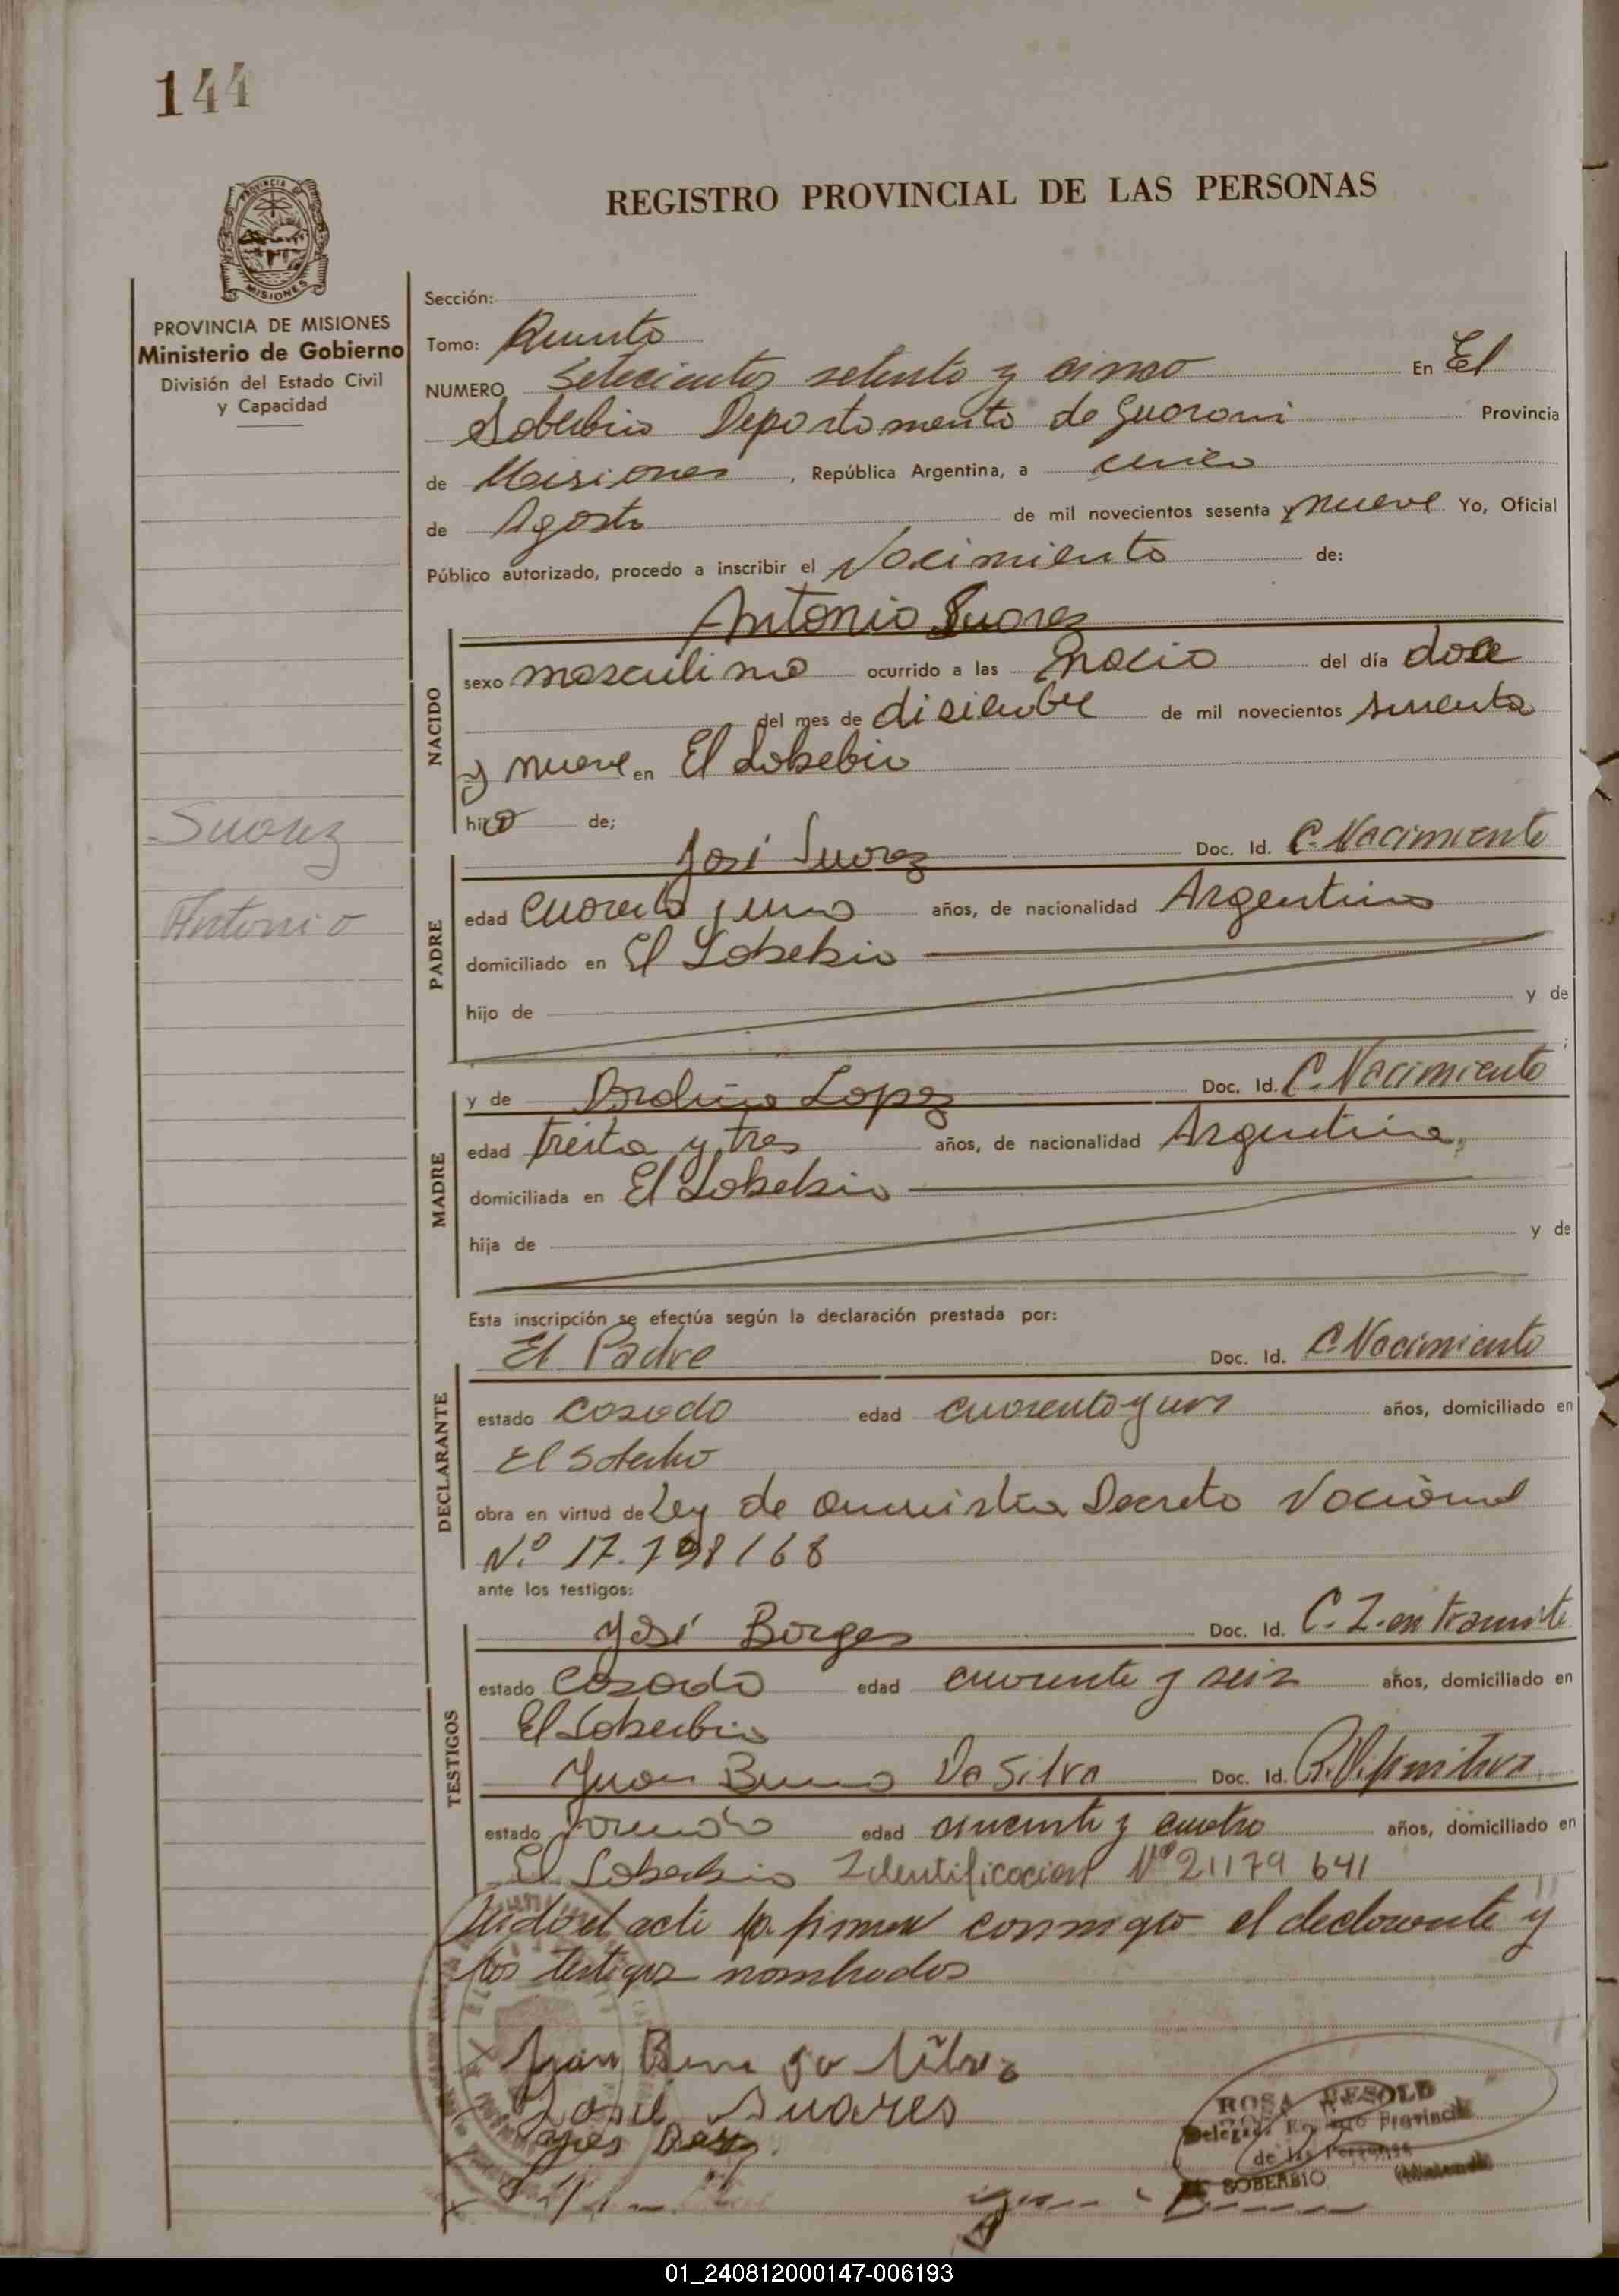 144
REGISTRO PROVINCIAL DE LAS PERSONAS
PROVINCIA DE MISIONES
MISIONES
PROVINCIA DE MISIONES
Ministerio de Gobierno
División del Estado Civil
y Capacidad
Suarez
Antonio
Sección:
Tomo: Quinto
NUMERO Setecientos setenta y cinco En El
Soberbio Departamento de Guarani Provincia
de Misiones, República Argentina, a cinco
de Agosto de mil novecientos sesenta y nueve Yo, Oficial
Público autorizado, procedo a inscribir el Nacimiento de:
Antonio Suarez
NACIDO
sexo masculino ocurrido a las del día doce
del mes de disiembre de mil novecientos
y nueve en El Soberbio
hijo de;
PADRE
José Suarez Doc. Id. C. Nacimiento
edad cuarenta y uno años, de nacionalidad Argentino
domiciliado en El Soberbio
hijo de y de
MADRE
y de Lopez Doc. Id. C. Nacimiento
edad treita y tres años, de nacionalidad Argentina
domiciliada en El Soberbio
hija de y de
Esta inscripción se efectúa según la declaración prestada por:
DECLARANTE
El Padre Doc. Id. C. Nacimiento
estado casado edad cuarenta y uno años, domiciliado en
El Soberbio
obra en virtud de Ley de amnistia Decreto Nacional
N.º 17.798/68
ante los testigos:
TESTIGOS
José Borges Doc. Id. C. I. en tramite
estado Casado edad cuarenta y seis años, domiciliado en
El Soberbio
Juan Da Silva Doc. Id.
estado edad cincuenta y cuatro años, domiciliado en
El Soberbio Identificacion Nº 21179 641
Leido el acta la firman conmigo el declarante y
los testigos nombrados
Juan
José Suares
ROSA
Delegada Provincial
de las Personas
EL SOBERBIO (Misiones)
01_240812000147-006193